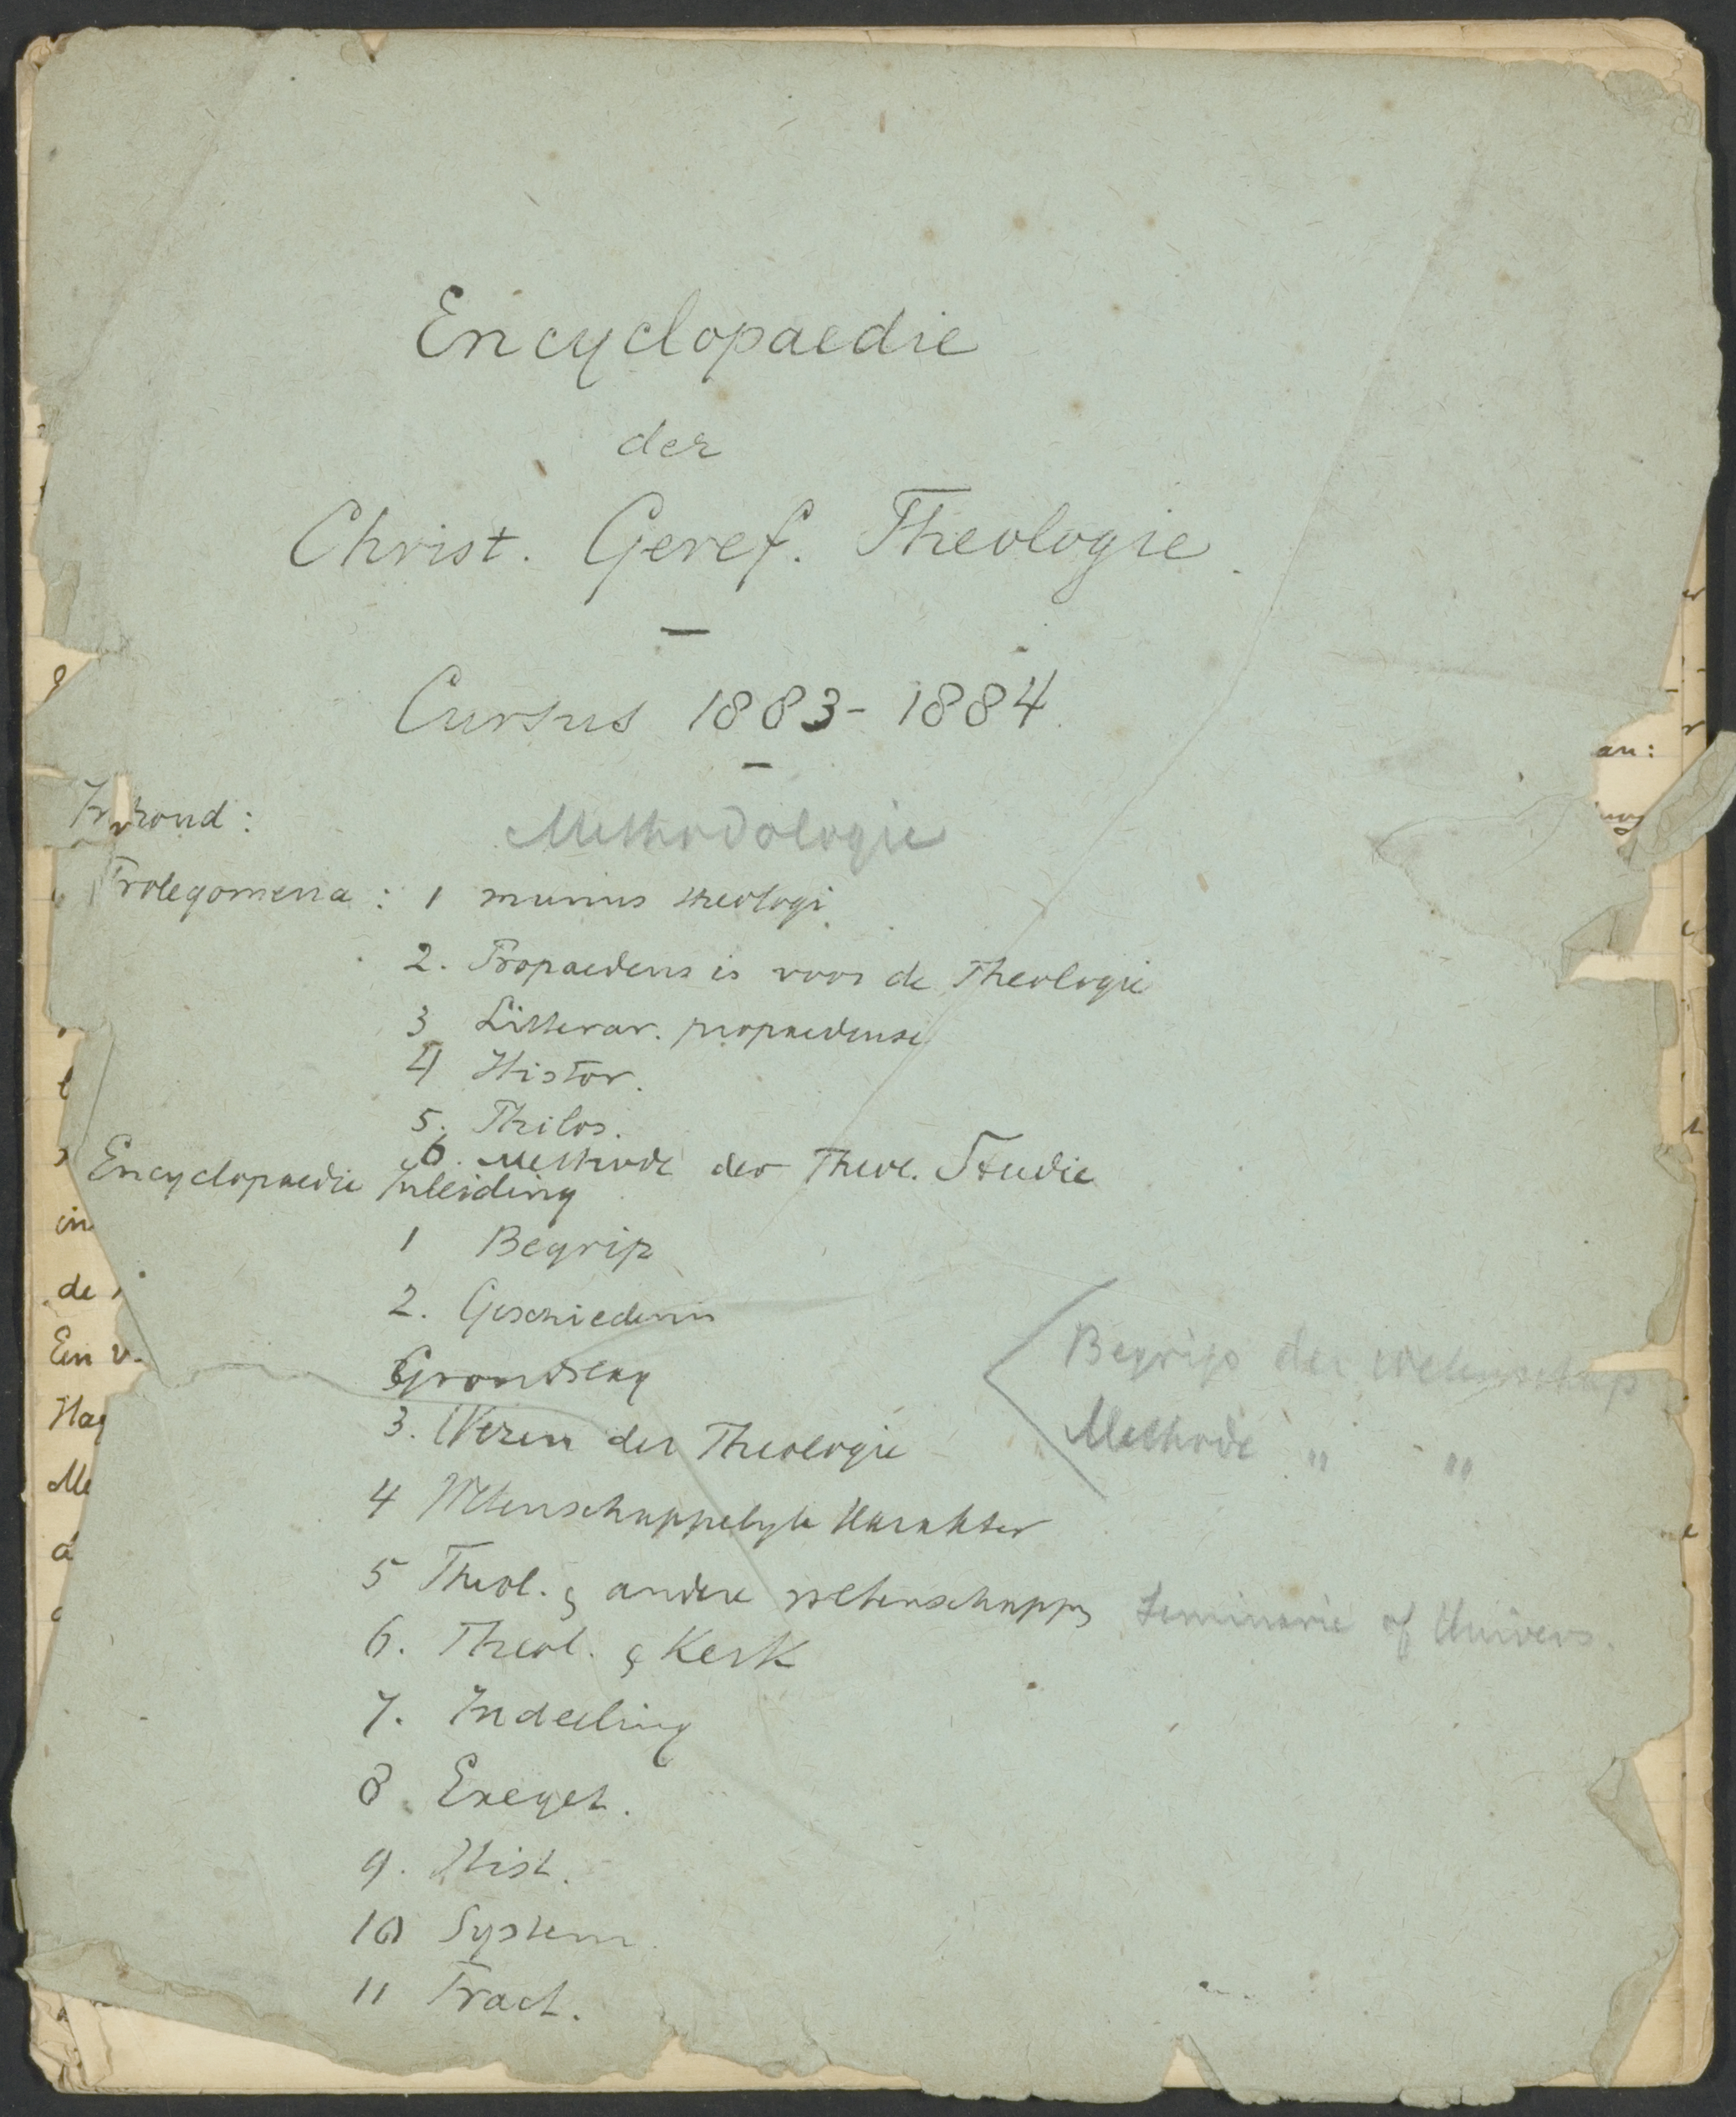 Encyclopaedie
der
Christ. Geref. Theologie.
Cursus 1883-1884.
Inhoud:
Methodologie
Prolegomena: 1 munus theologi
2. Propaedeusis voor de Theologie
3 Litterar. propaedeuse
4 Histor.
5. Philos.
6. Methode der Theol. Studie
Encyclopaedie Inleiding
1 Begrip
2. Geschiedenis
Grondslag
3. Wezen der Theologie
4 Wetenschappelyk karakter
5 Theol. & andere wetenschappen
6. Theol. & Kerk
7. Indeeling
8. Exeget.
9. Hist.
10 System.
11 Pract.
Begrip der wetenschap
Methode " "
Seminarie of Univers.
an:
in
de
Ein v.
Hag
Me